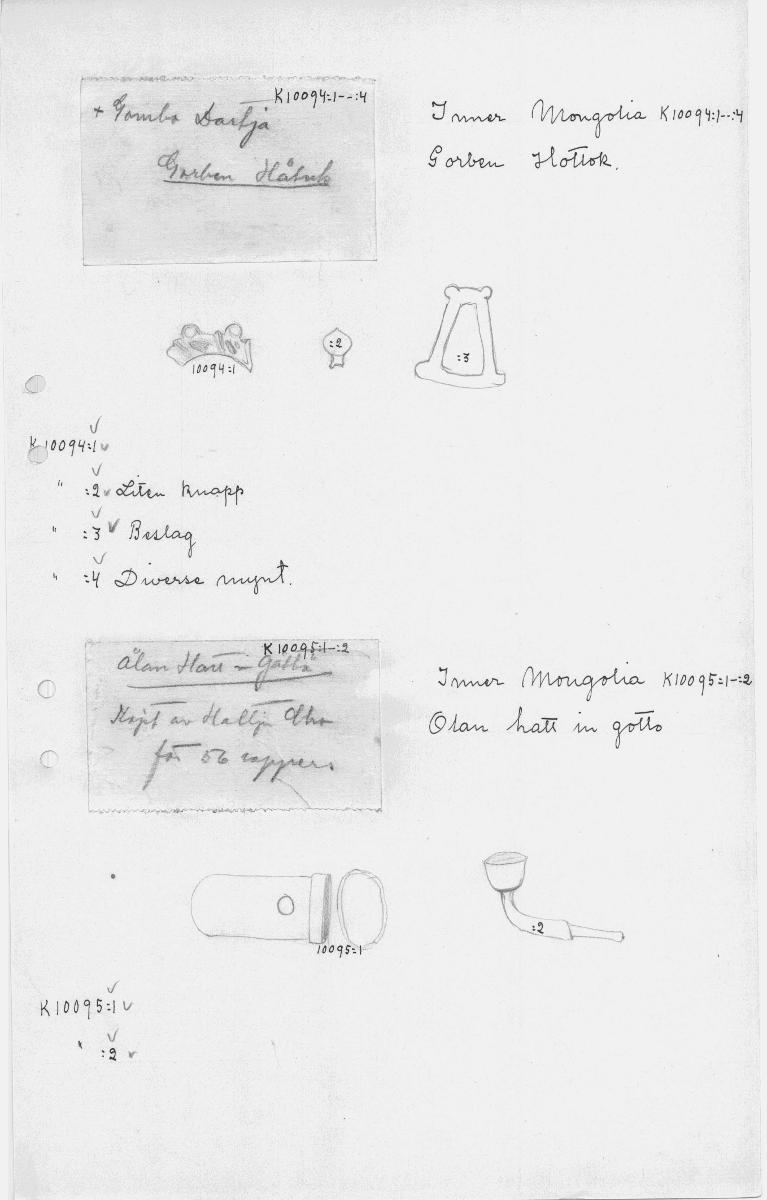 K10094:1--:4
+ Gombo Dartja
Gorben Håtuk
Inner Mongolia K10094:1--:4
Gorben Hottok.
10094:1
:2
:3
K10094:1
" :2 Liten knapp
" :3 Beslag
" :4 Diverse mynt.
K10095:1-:2
Ålan Hatt in Gatto
Köpt av
för 56 coppers.
Inner Mongolia K10095:1-:2
Olan hatt in gotto
10095:1
:2
K10095:1
" :2